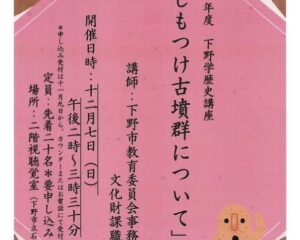 年度 下野学歴史講座
しもつけ古墳群について」
講師：下野市教育委員会事務
文化財課職
開催日時：十二月七日（日）
午後二時～三時三十分
＊申し込み受付は十一月九日から、カウンターまたはお電話にて受付
定員：先着二十名＊要申し込み
場所：二階視聴覚室（下野市立石